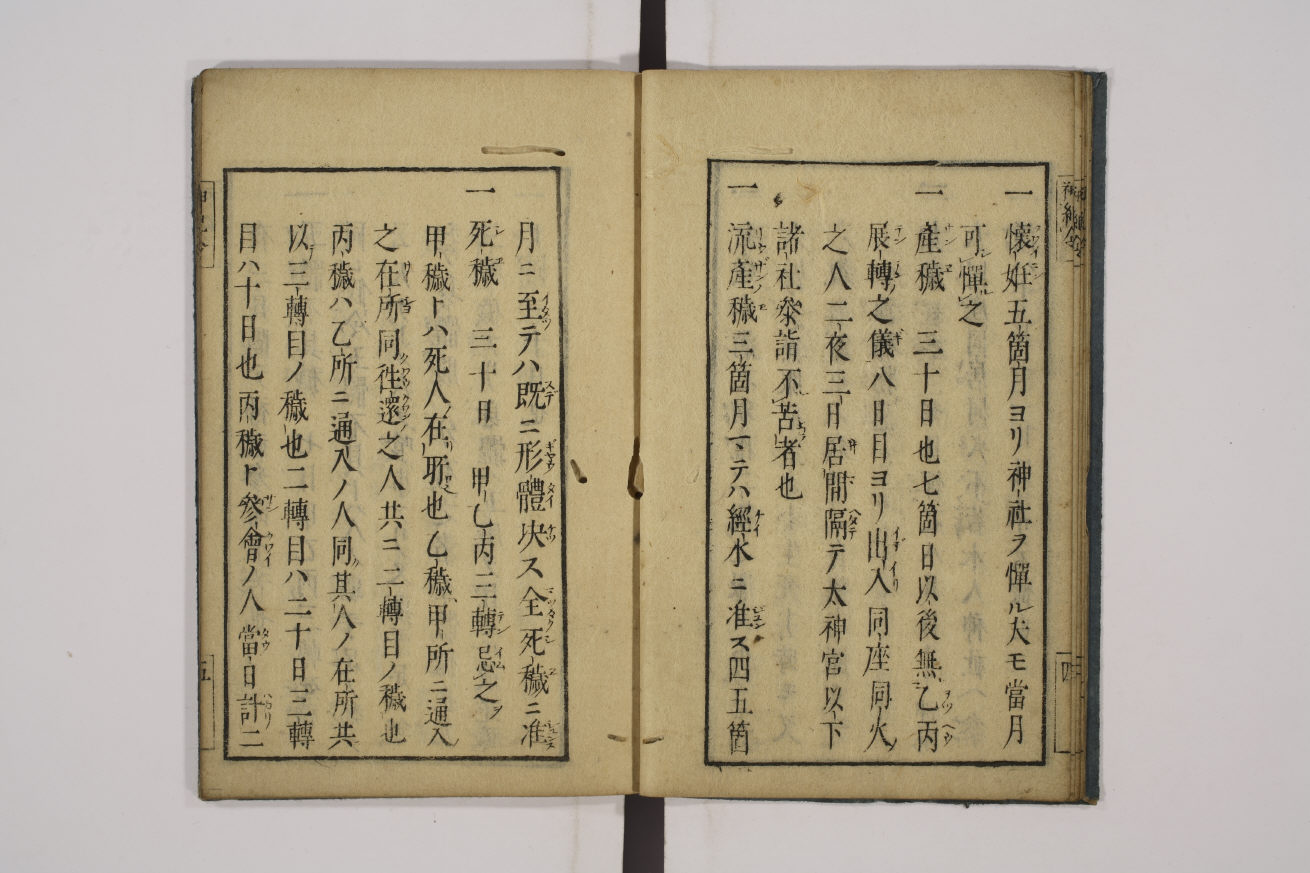 一 懐妊五箇月ヨリ神社ヲ憚ル夫モ當月
可憚之
一 產穢 三十日也七箇日以後無乙丙
展轉之儀八日目ヨリ出入同座同火
之人二夜三日居間隔テ太神宮以下
諸社參詣不苦者也
一 流產穢三箇月マテハ經水ニ准ス四五箇
月ニ至テハ既ニ形體决ス全死穢ニ准
一 死穢 三十日 甲乙丙三轉忌之
甲穢トハ死人在所也乙穢甲所ニ通入
之在所同徃還之人共ニ二轉目ノ穢也
丙穢ハ乙所ニ通入ノ人同其人ノ在所共
以三轉目ノ穢也二轉目ハ二十日三轉
目ハ十日也丙穢ト參會ノ人當日計ニ
四
五